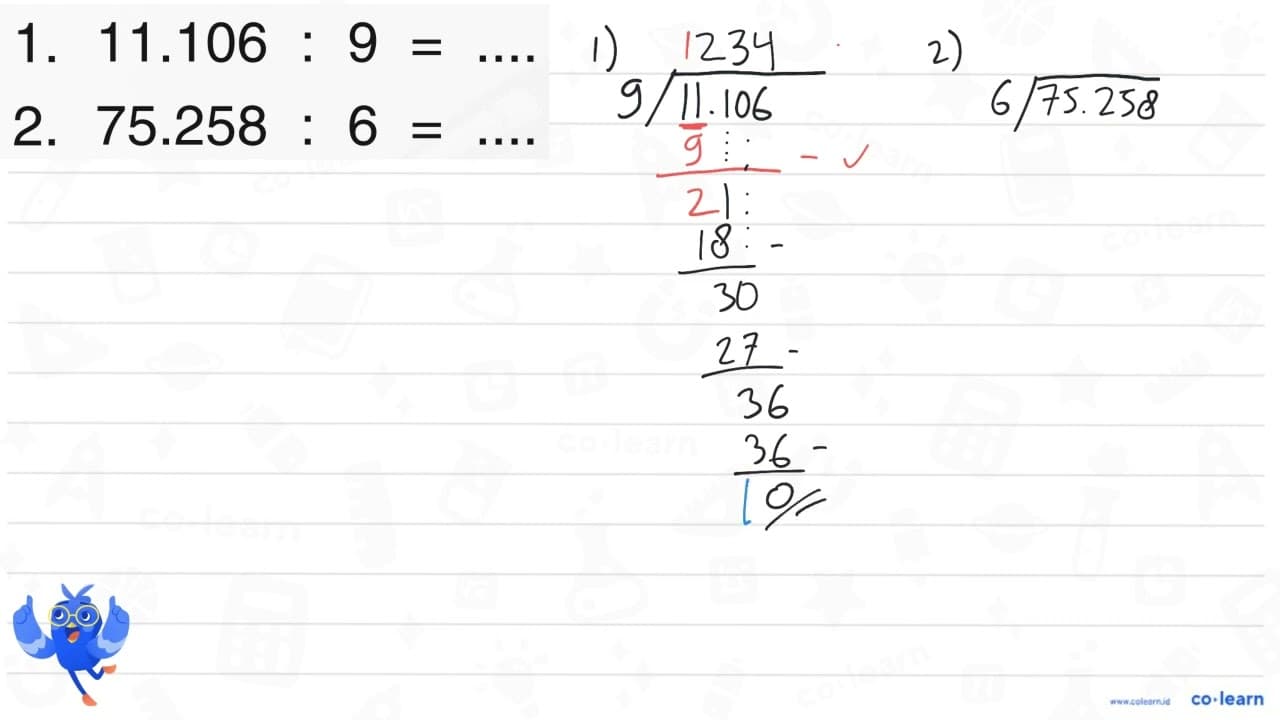 1. 11.106 : 9 = ....
2. 75.258 : 6 = ....
1) 1234
9/11.106
9
-
21
18 -
30
27 -
36
36 -
0
2)
6/75.258
www.colearn.id co·learn